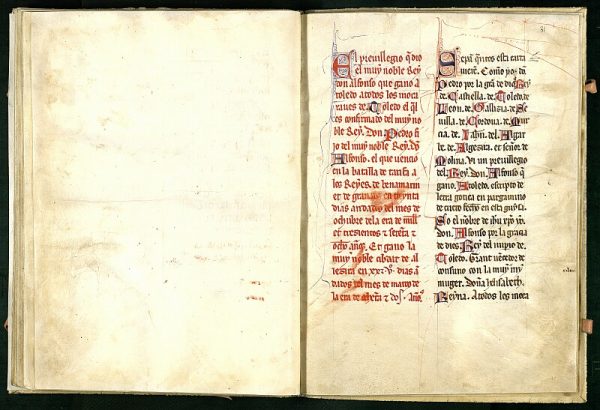 El preuillegio q̃ dio
el muy noble Rey
don alfonso que gano a
toledo atodos los moça
raues de Toledo el q̃l
es confirmado del muy no
ble Rey. Don Pedro fi
jo del muy noble Rey. dõ
Alfonso. el que uencio
en la batalla de tarifa a
los Reyes. de benamarin
et de granada en treynta
dias andados del mes de
ochubre de la era de mill
et trezientos et setẽta et
ocho años. Et gano la
muy noble cibdat de al
iezira en xxvj. dias ã
dados del mes de março de
la era de mill et dos. años.
Sepã quãtos esta carta
uierẽ. Como yo dõ
Pedro por la gr̃a de dios Rey
de. Castiella. de. Toledo. de
Leon. de. Gallizia. de. Se
uilla. de. Cordoua. de. Mur
cia. de. Jahẽ. del. Algar
be. de. Algezira. et señor. de
Molina. Vi un preuillegio
del. Rey. Don. Alfonso. q̃
gano. Atoledo. escripto de
letra gotica en pargamino
de cuero fecho en esta guisa.
So el nõbre de ihũ xp̃o yo.
Don. Alfonso por la gracia
de dios. Rey del inperio de.
Toledo. et
consuno con la muy
muger. Doña helisabeth.
Reyna. Atodos los moça